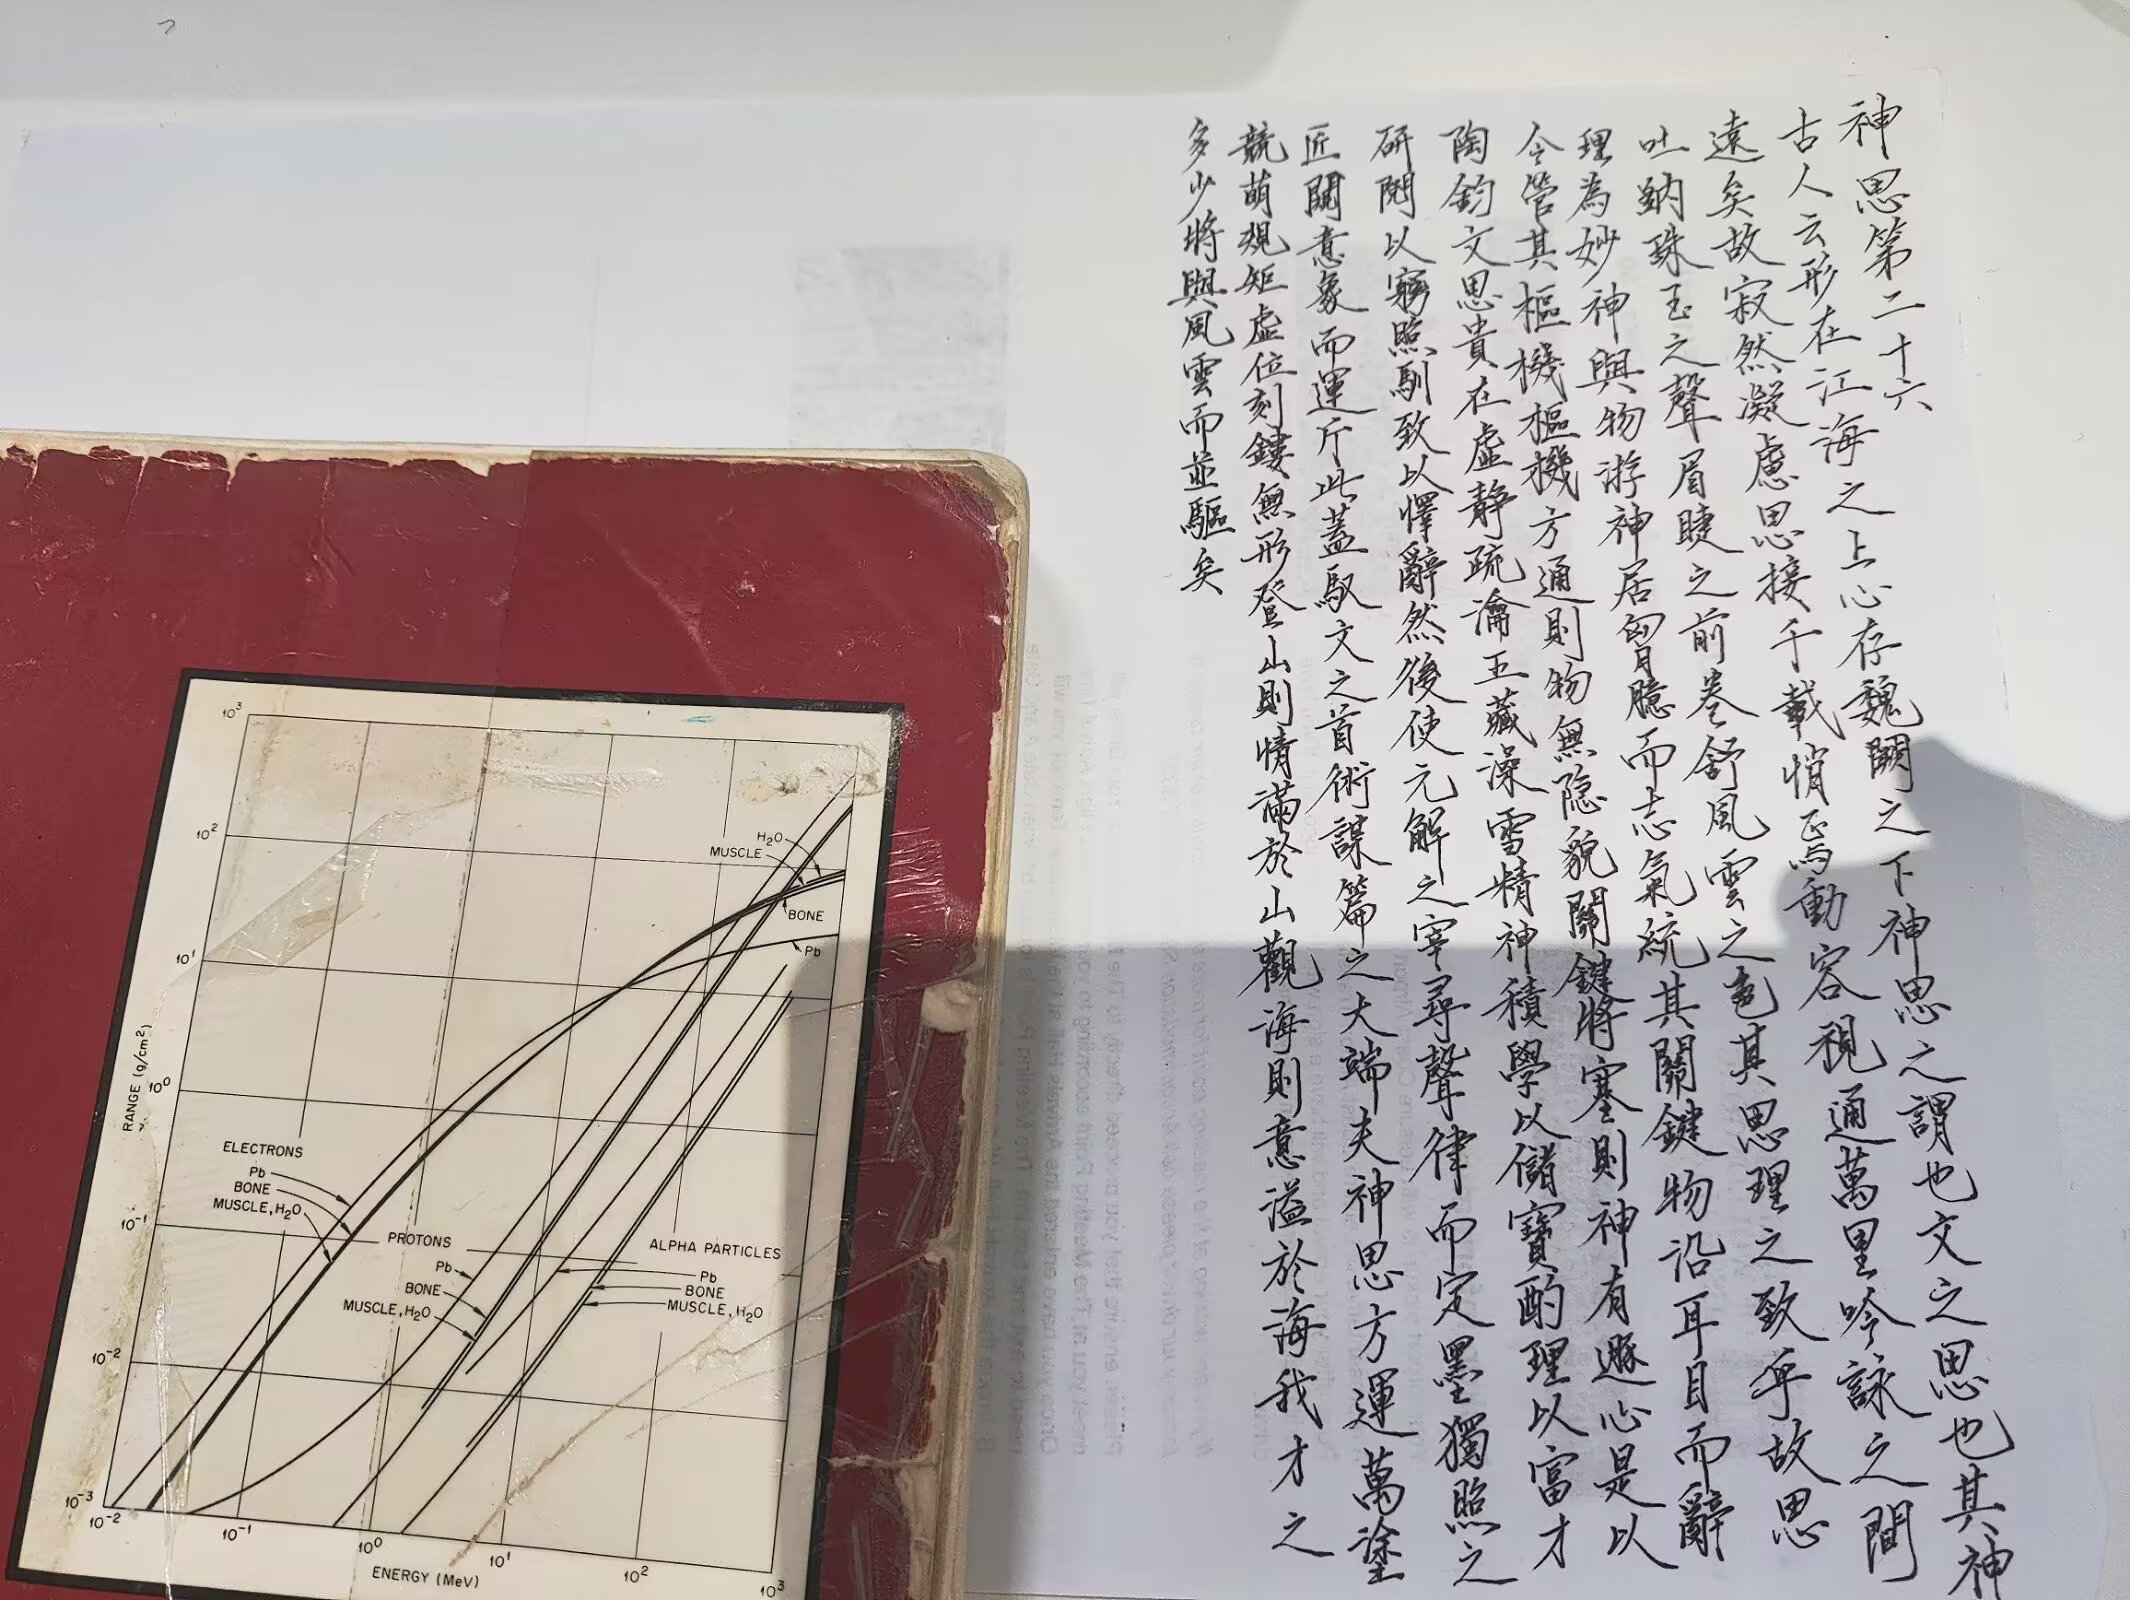 神思第二十六
古人云形在江海之上心存魏闕之下神思之謂也文之思也其神
遠矣故寂然凝慮思接千載悄焉動容視通萬里吟詠之間
吐納珠玉之聲眉睫之前卷舒風雲之色其思理之致乎故思
理為妙神與物游神居胷臆而志氣統其關鍵物沿耳目而辭
令管其樞機樞機方通則物無隱貌關鍵將塞則神有遯心是以
陶鈞文思貴在虛靜疏瀹五藏澡雪精神積學以儲寶酌理以富才
研閱以窮照馴致以懌辭然後使元解之宰尋聲律而定墨獨照之
匠闚意象而運斤此蓋馭文之首術謀篇之大端夫神思方運萬塗
競萌規矩虛位刻鏤無形登山則情滿於山觀海則意溢於海我才之
多少將與風雲而並驅矣
10³
10²
10¹
10⁰
10⁻¹
10⁻²
10⁻³
RANGE (g/cm²)
H₂O
MUSCLE
BONE
Pb
ELECTRONS
Pb
BONE
MUSCLE, H₂O
PROTONS
Pb
BONE
MUSCLE, H₂O
ALPHA PARTICLES
Pb
BONE
MUSCLE, H₂O
10⁻²
10⁻¹
10⁰
10¹
10²
10³
ENERGY (MeV)